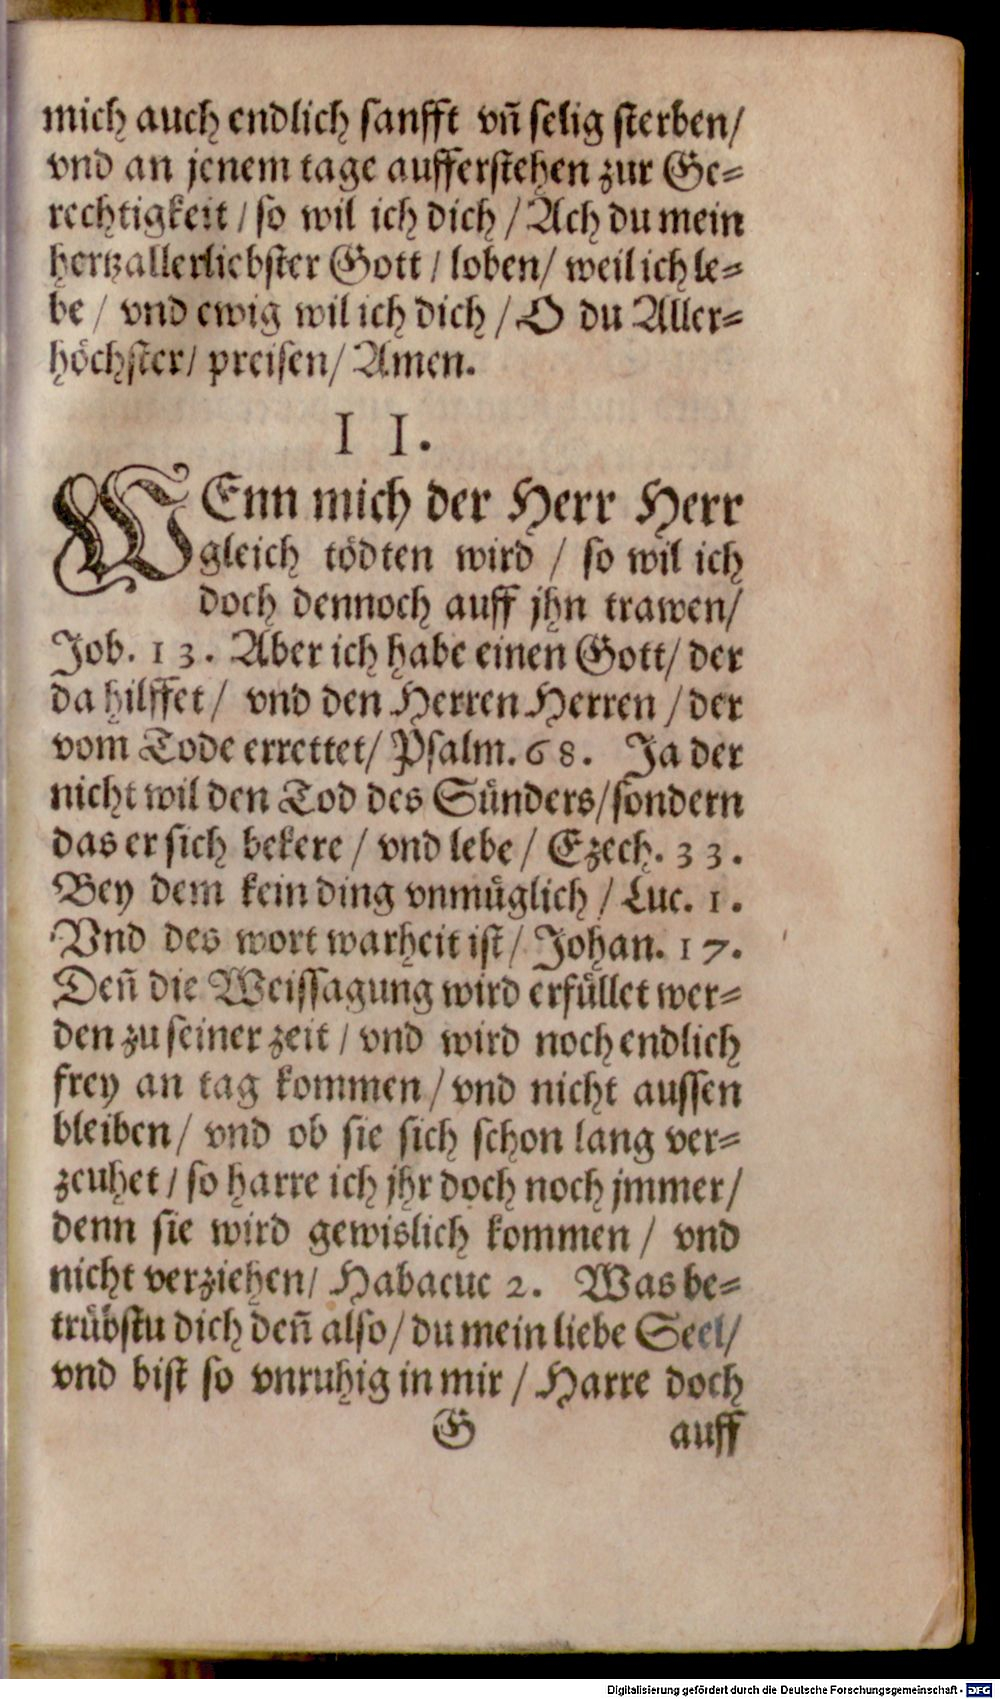 mich auch endlich sanfft vñ selig sterben/
vnd an jenem tage aufferstehen zur Ge=
rechtigkeit / so wil ich dich / Ach du mein
hertzallerliebster Gott / loben/ weil ich le=
be / vnd ewig wil ich dich / O du Aller=
höchster/ preisen/ Amen.
I I.
WEnn mich der Herr Herr
gleich tödten wird / so wil ich
doch dennoch auff jhn trawen/
Job. 13. Aber ich habe einen Gott/ der
da hilffet/ vnd den Herren Herren / der
vom Tode errettet/ Psalm. 68. Ja der
nicht wil den Tod des Sünders/sondern
das er sich bekere / vnd lebe / Ezech. 33.
Bey dem kein ding vnmüglich / Luc. 1.
Vnd des wort warheit ist/ Johan. 17.
Deñ die Weissagung wird erfüllet wer=
den zu seiner zeit / vnd wird noch endlich
frey an tag kommen / vnd nicht aussen
bleiben/ vnd ob sie sich schon lang ver=
zeuhet / so harre ich jhr doch noch jmmer/
denn sie wird gewislich kommen / vnd
nicht verziehen/ Habacuc 2. Was be=
trübstu dich deñ also/ du mein liebe Seel/
vnd bist so vnruhig in mir / Harre doch
G auff
Digitalisierung gefördert durch die Deutsche Forschungsgemeinschaft - DFG